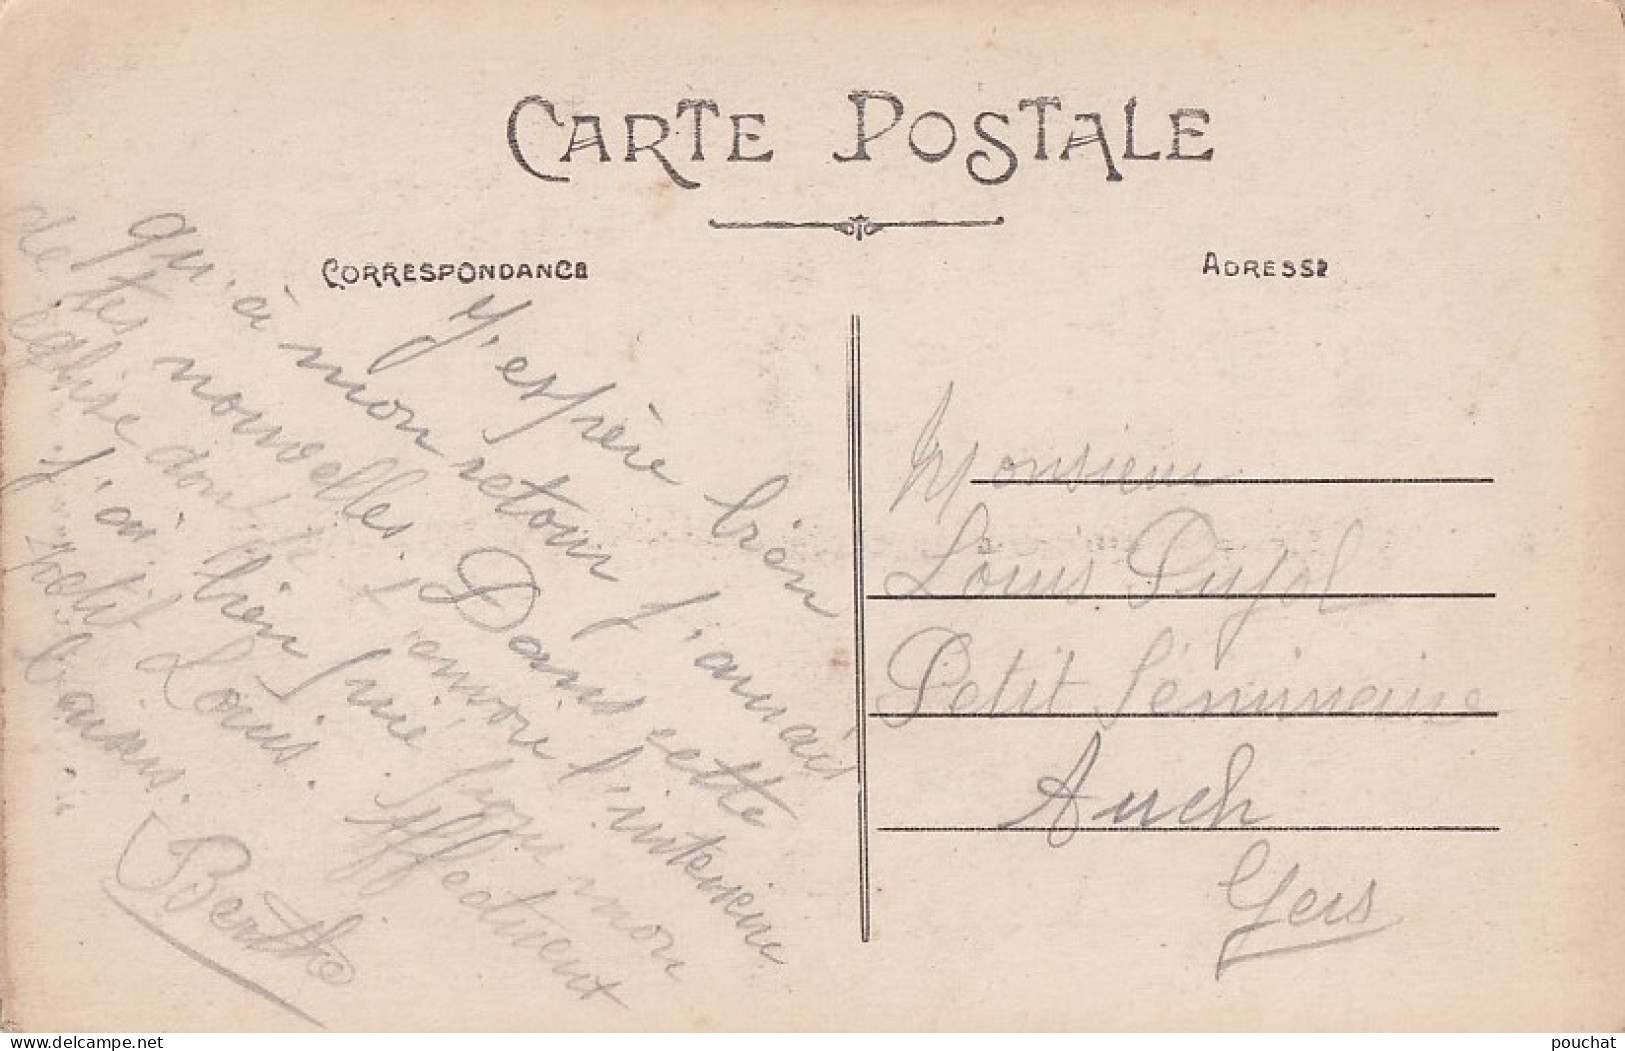 CARTE POSTALE
CORRESPONDANCE
ADRESSE
J'espère bien
qu'à mon retour j'aurais
de tes nouvelles. Dans cette
église dont je t'envoie l'intérieur
j'ai bien prié pour mon
petit Louis. Affectueux
baisers.
Berthe
Monsieur
Louis Pujol
Petit Séminaire
Auch
Gers
delcampe.net
pouchat